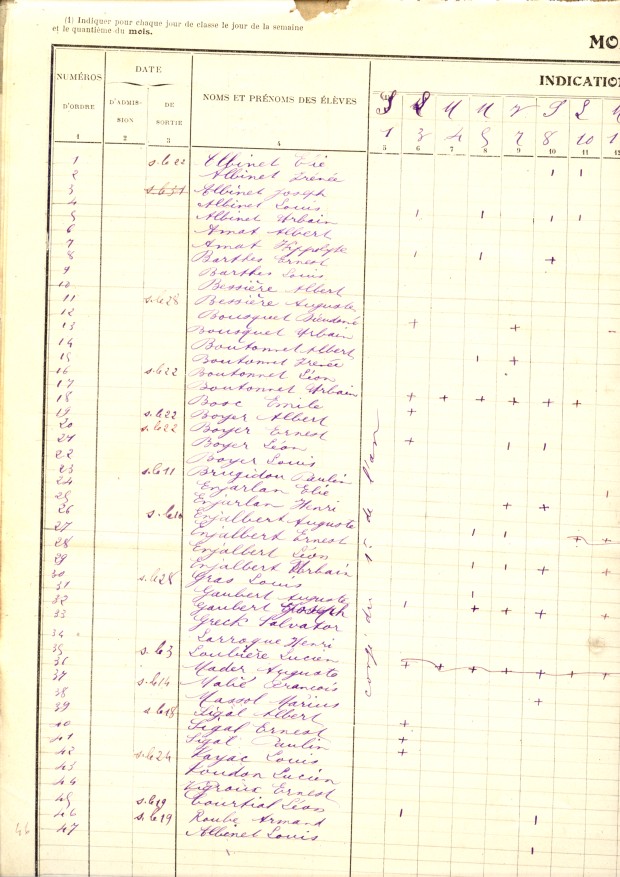 (1) Indiquer pour chaque jour de classe le jour de la semaine
et le quantième du mois.
MO
NUMÉROS D'ORDRE
DATE
D'ADMIS-SION
DE SORTIE
NOMS ET PRÉNOMS DES ÉLÈVES
INDICATIO
1 2 3 4 5 6 7 8 9 10 11 12
S L M M V S L
1 3 4 5 7 8 10
1 s. le 22 Albinet Elie
2 Albinet Irénée
3 s. le 31 Albinet Joseph
4 Albinet Louis
5 Albinet Urbain
6 Amat Albert
7 Amat Hippolyte
8 Barthes Ernest
9 Barthes Louis
10 Bessière Albert
11 s. le 28 Bessière Auguste
12 Bousquet Dieudoné
13 Bousquet Urbain
14 Boutonnet Albert
15 Boutonnet Irénée
16 s. le 22 Boutonnet Léon
17 Boutonnet Urbain
18 Bosc Emile
19 s. le 22 Boyer Albert
20 s. le 22 Boyer Ernest
21 Boyer Léon
22 Boyer Louis
23 s. le 11 Brugidou Paulin
24 Enjarlan Elie
25 Enjarlan Henri
26 s. le Enjalbert Auguste
27 Enjalbert Ernest
28 Enjalbert Léon
29 Enjalbert Urbain
30 s. le 28 Gras Louis
31 Gaubert Auguste
32 Gaubert Joseph
33 Greck Salvator
34 Larroque Henri
35 s. le 3 Loubière Lucien
36 Mader Auguste
37 s. le 14 Malié François
38 Massol Marius
39 s. le 18 Sigal Albert
40 Sigal Ernest
41 Sigal Paulin
42 s. le 24 Vayac Louis
43 Voudon Lucien
44 Vigroux Ernest
45 s. le 19 Courtial Léon
46 s. le 19 Roube Armand
47 Albinet Louis
46
congé du 1er de l'an